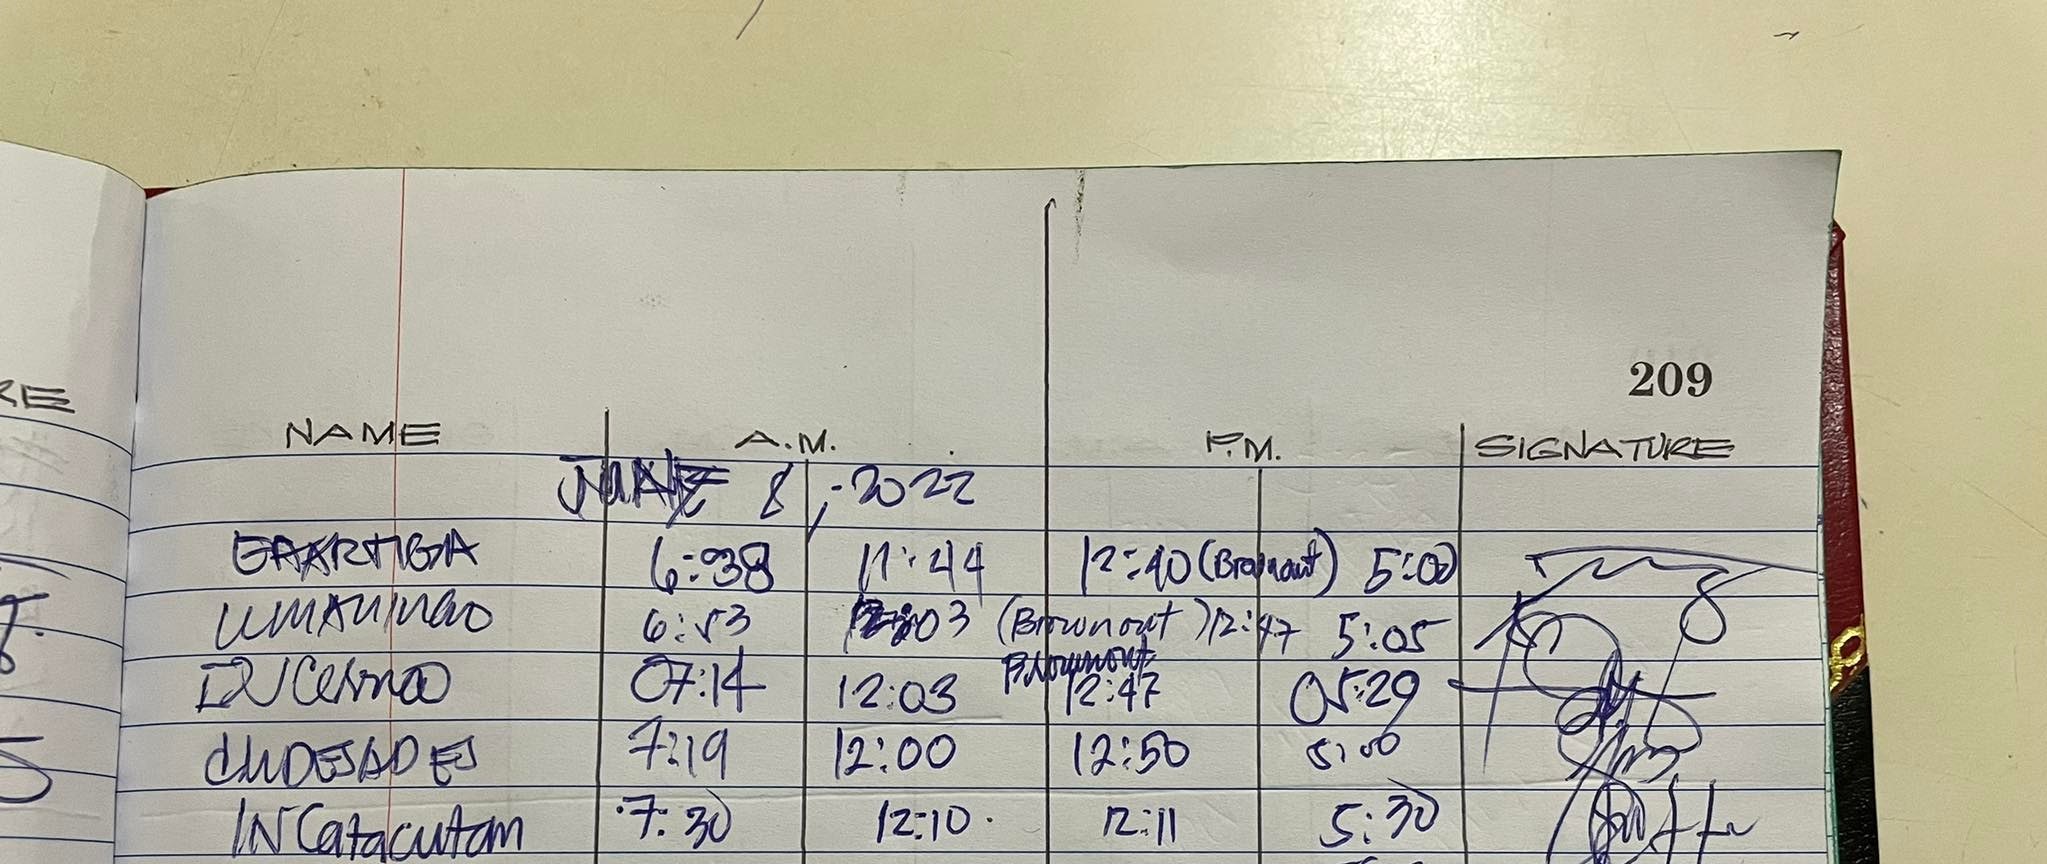 RE
209
NAME A.M. P.M. SIGNATURE
JUNE 8, 2022
6:38 11:44 12:40 (Brownout) 5:00
6:53 12:03 (Brownout) 12:47 5:05
Brownout
07:14 12:03 12:47 05:29
7:19 12:00 12:50 5:00
IN Catacutan 7:30 12:10 12:11 5:30